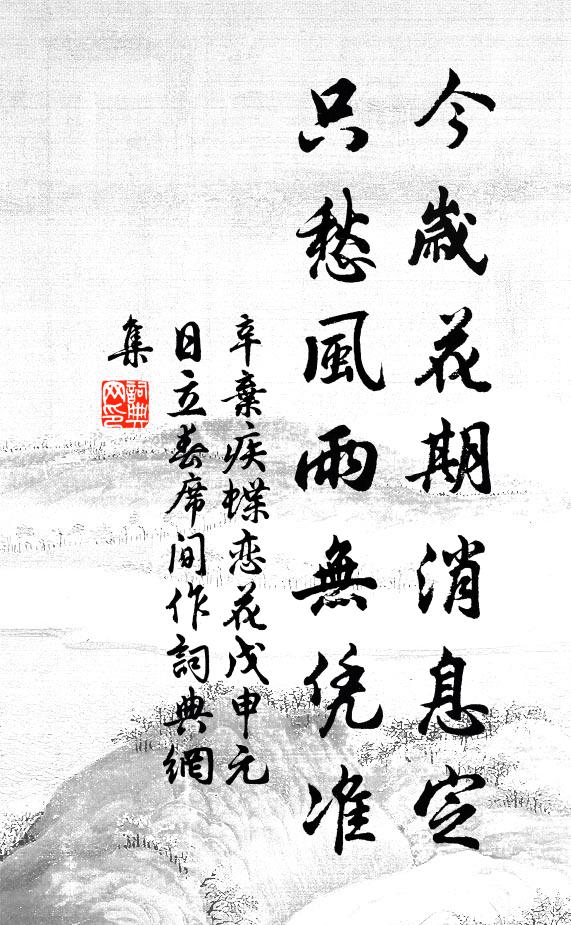 今歲花期消息定
只愁風雨無凭准
辛棄疾蝶恋花戊申元
日立春席间作詞典網
集
詞典
网印